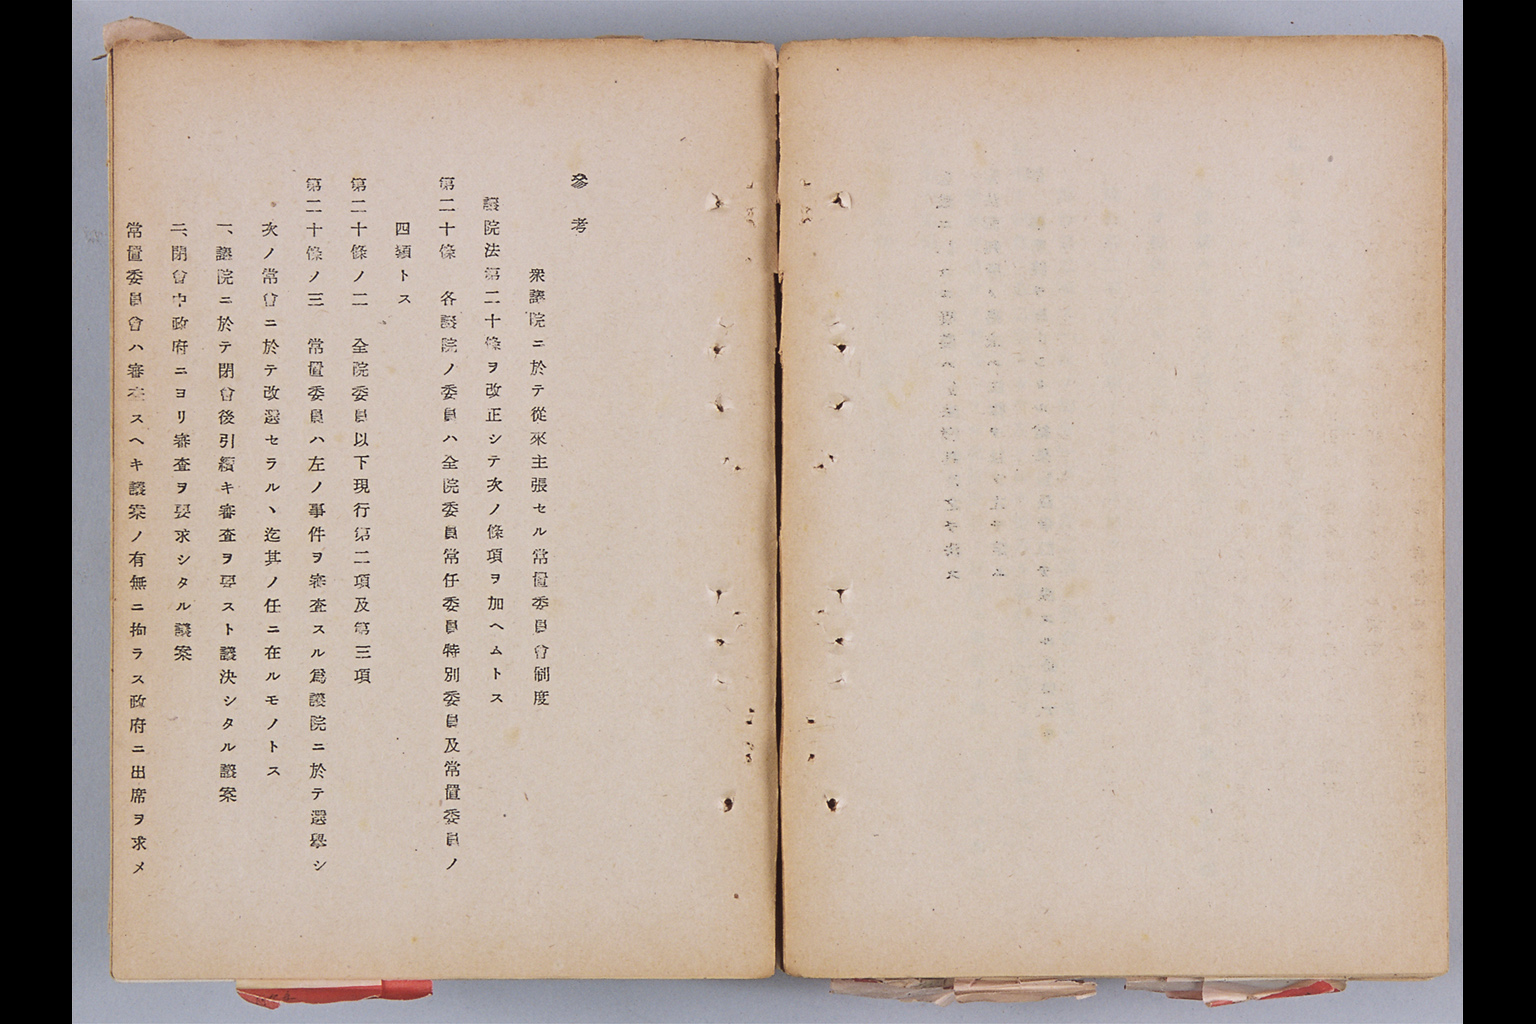 參考
衆議院ニ於テ從來主張セル常置委員會制度
議院法第二十條ヲ改正シテ次ノ條項ヲ加ヘムトス
第二十條　各議院ノ委員ハ全院委員常任委員特別委員及常置委員ノ
四類トス
第二十條ノ二　全院委員以下現行第二項及第三項
第二十條ノ三　常置委員ハ左ノ事件ヲ審査スル爲議院ニ於テ選擧シ
次ノ常會ニ於テ改選セラルヽ迄其ノ任ニ在ルモノトス
一、議院ニ於テ閉會後引續キ審査ヲ要スト議決シタル議案
二、閉會中政府ニヨリ審査ヲ要求シタル議案
常置委員會ハ審査スヘキ議案ノ有無ニ拘ラス政府ニ出席ヲ求メ